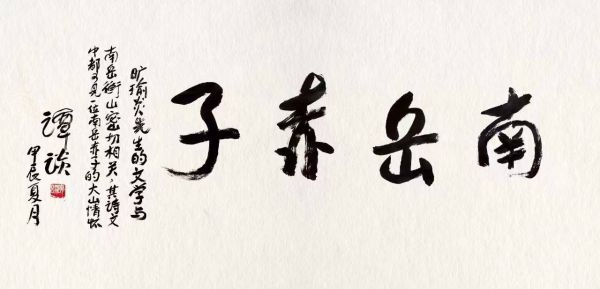 南岳赤子
旷瑜炎先生的文学与
南岳衡山密切相关，其诗文
中都可见一位南岳赤子的大山情怀
甲辰夏月
谭谈